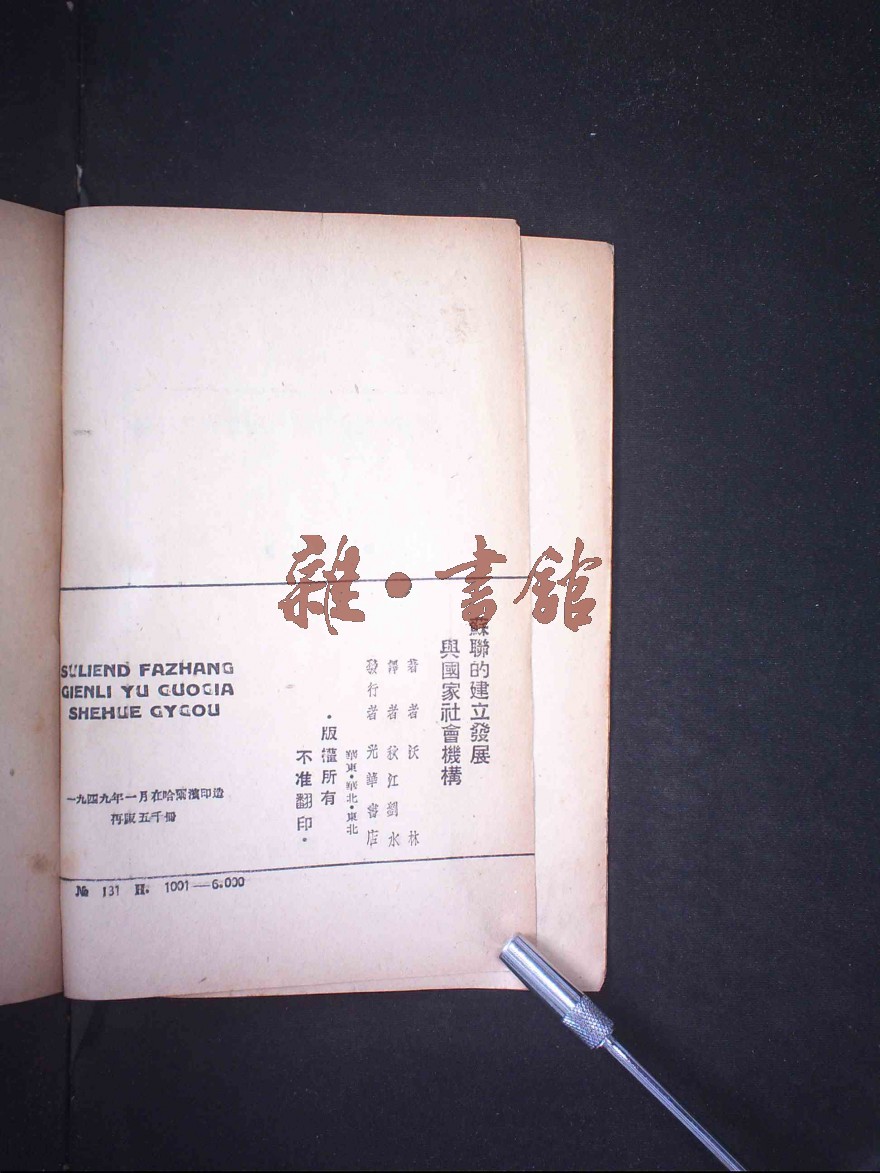 雜·書館
蘇聯的建立發展
與國家社會機構
著者 沃林
譯者 秋江 劉水
發行者 光華書店
華東·華北·東北
·版權所有
不准翻印·
SULIEND FAZHANG
GIENLI YU GUOGIA
SHEHUE GYGOU
一九四九年一月在哈爾濱印造
再版五千冊
№ 131 H. 1001—6.000